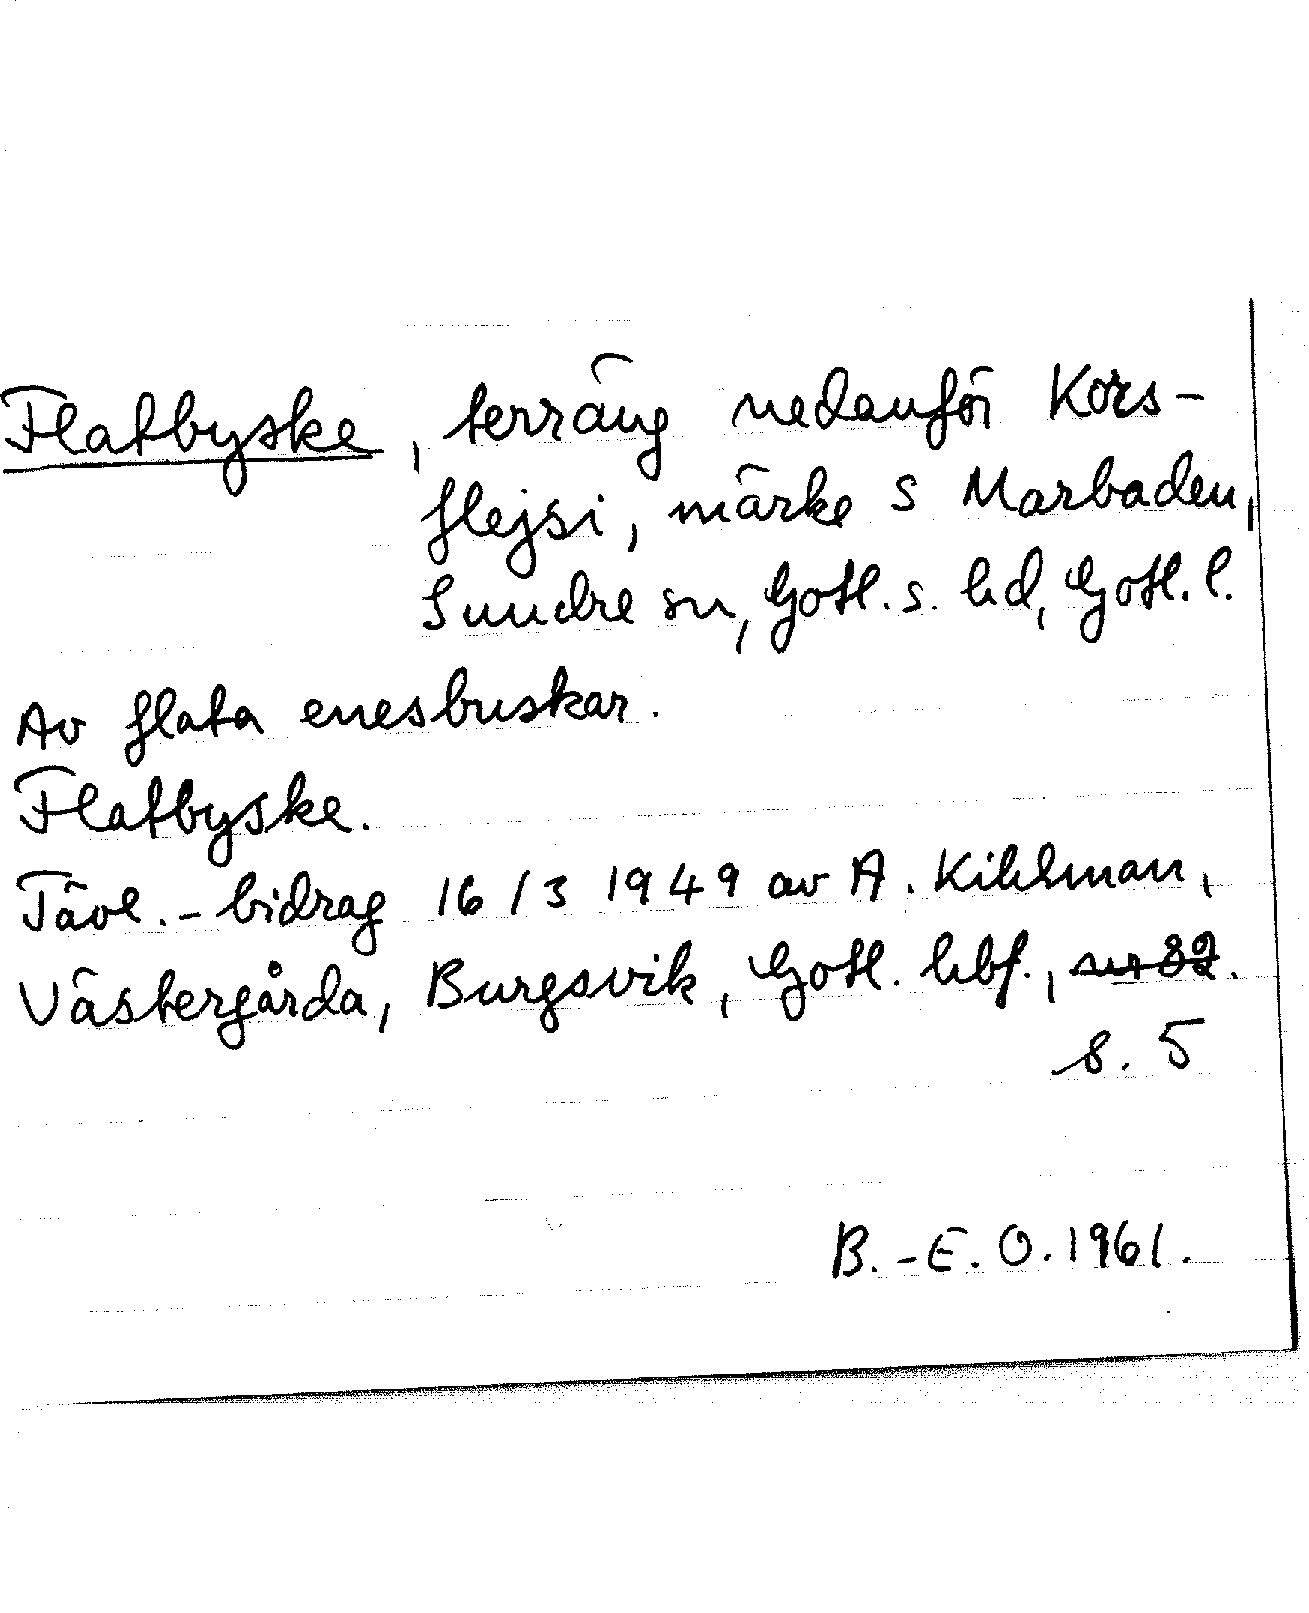 Flatbyske, terräng nedanför Kors-
flejsi, märke S Marbaden,
Sundre sn, Gotl. s. hd, Gotl. l.
Av flata enesbuskar.
Flatbyske.
Tävl.-bidrag 16/3 1949 av A. Kihlman,
Västergårda, Burgsvik, Gotl. hbf., nr 82.
s. 5
B.-E. O. 1961.